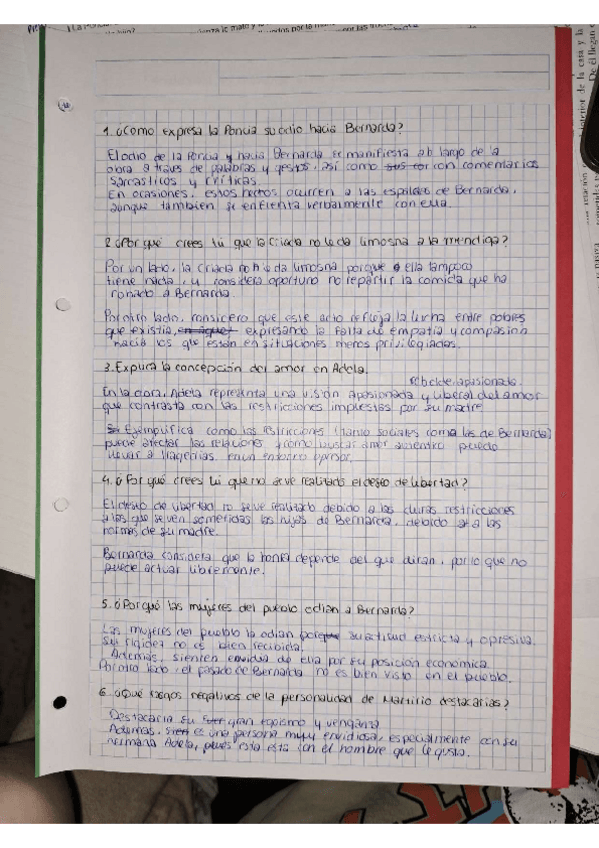 1. ¿Como expresa la Poncia su odio hacia Bernarda?
El odio de la Poncia y hacia Bernarda se manifiesta a lo largo de la
obra a traves de palabras y gestos, así como con comentarios
sarcasticos y críticas.
En ocasiones, estos hechos ocurren a las espaldas de Bernarda,
aunque tambien se enfrenta verbalmente con ella.
2. ¿Por qué crees tú que la Criada no le da limosna a la mendiga?
Por un lado, la criada no le da limosna porque ella tampoco
tiene nada, y considera oportuno no repartir la comida que ha
robado a Bernarda.
Por otro lado, considero que este acto refleja la lucha entre pobres
que existía, expresando la falta de empatía y compasión
hacia los que están en situaciones menos privilegiadas.
3. Explica la concepción del amor en Adela.
rebelde, apasionado.
En la obra, Adela representa una visión apasionada y liberal del amor
que contrasta con las restricciones impuestas por su madre.
Ejemplifica como las restricciones (tanto sociales como las de Bernarda)
puede afectar las relaciones y como buscar amor autentico puede
llevar a tragedias en un entorno opresor.
4. ¿Por qué crees tú que no se ve realizado el deseo de libertad?
El deseo de libertad no se ve realizado debido a las duras restricciones
a las que se ven sometidas las hijas de Bernarda, debido a las
normas de su madre.
Bernarda considera que la honra depende del que dirán, por lo que no
puede actuar libremente.
5. ¿Por qué las mujeres del pueblo odian a Bernarda?
Las mujeres del pueblo la odian por su actitud estricta y opresiva.
Su rigidez no es bien recibida.
Además, sienten envidia de ella por su posición economica.
Por otro lado, el pasado de Bernarda no es bien visto en el pueblo.
6. ¿Qué rasgos negativos de la personalidad de Martirio destacarías?
Destacaría su gran egoismo y venganza.
Además, es una persona muy envidiosa, especialmente con su
hermana Adela, pues esta está con el hombre que le gusta.